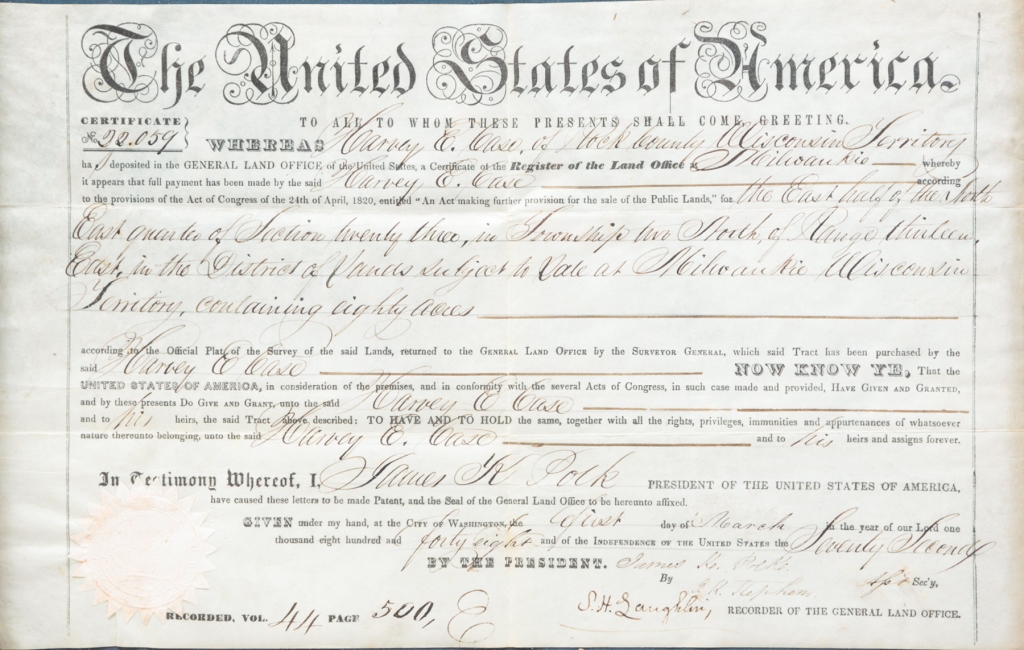 The United States of America.
CERTIFICATE
No. 22.059
TO ALL TO WHOM THESE PRESENTS SHALL COME, GREETING.
WHEREAS Harvey E. Case, of Rock County Wisconsin Territory
ha s deposited in the GENERAL LAND OFFICE of the United States, a Certificate of the Register of the Land Office at Milwaukie whereby
it appears that full payment has been made by the said Harvey E. Case according
to the provisions of the Act of Congress of the 24th of April, 1820, entitled "An Act making further provision for the sale of the Public Lands," for the East half of the North
East quarter of Section twenty three, in Township two North, of Range thirteen,
East, in the District of Lands subject to Sale at Milwaukie Wisconsin
Territory, containing eighty acres
according to the Official Plat of the Survey of the said Lands, returned to the GENERAL LAND OFFICE by the SURVEYOR GENERAL, which said Tract has been purchased by the
said Harvey E Case NOW KNOW YE, That the
UNITED STATES OF AMERICA, in consideration of the premises, and in conformity with the several Acts of Congress, in such case made and provided, HAVE GIVEN AND GRANTED,
and by these presents DO GIVE AND GRANT, unto the said Harvey E Case
and to his heirs, the said Tract above described: TO HAVE AND TO HOLD the same, together with all the rights, privileges, immunities and appurtenances of whatsoever
nature thereunto belonging, unto the said Harvey E. Case and to his heirs and assigns forever.
In Testimony Whereof, I, James K Polk PRESIDENT OF THE UNITED STATES OF AMERICA,
have caused these letters to be made Patent, and the Seal of the General Land Office to be hereunto affixed.
GIVEN under my hand, at the CITY OF WASHINGTON, the first day of March in the year of our Lord one
thousand eight hundred and forty eight and of the INDEPENDENCE OF THE UNITED STATES the Seventy Second
BY THE PRESIDENT. James K. Polk
By J. K. Stephens asst Sec'y.
S. H. Laughlin, RECORDER OF THE GENERAL LAND OFFICE.
RECORDED, VOL. 44 PAGE 500, E